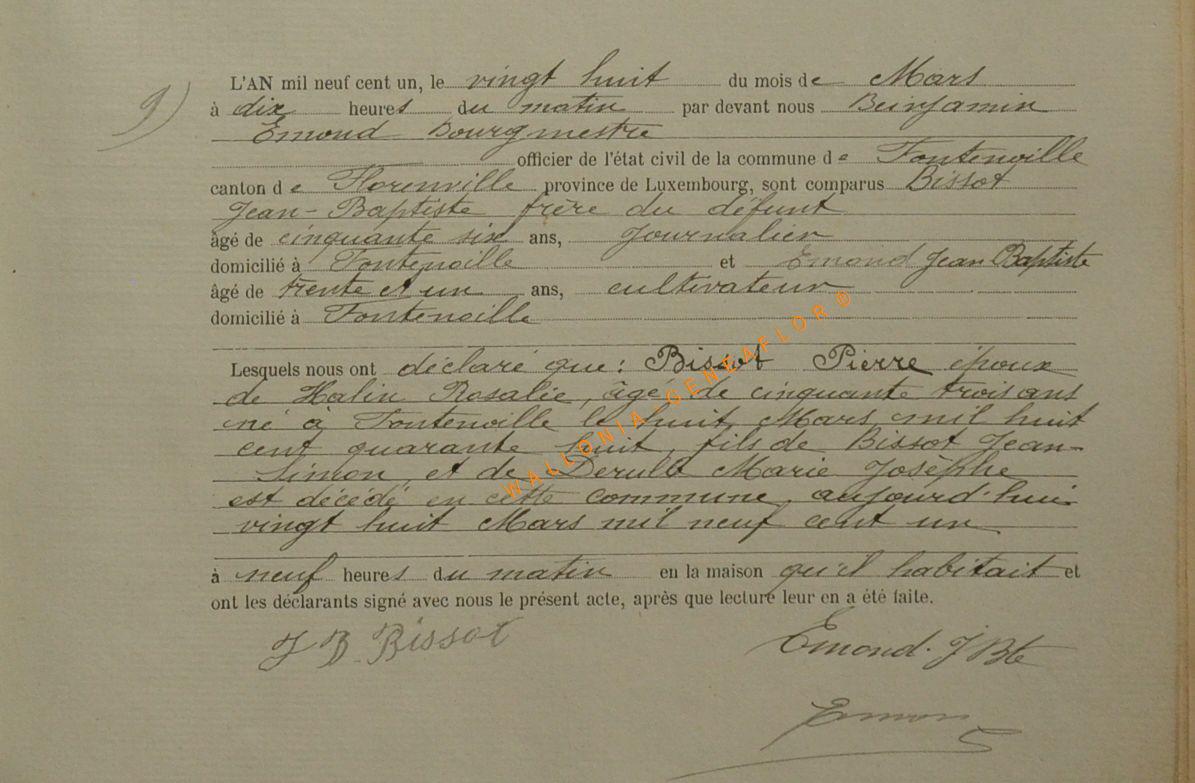 9)
L'AN mil neuf cent un, le vingt huit du mois de Mars
à dix heures du matin par devant nous Benjamin
Emond Bourgmestre
officier de l'état civil de la commune de Fontenoille
canton de Florenville province de Luxembourg, sont comparus Bissot
Jean-Baptiste frère du défunt
âgé de cinquante six ans, Journalier
domicilié à Fontenoille et Emond Jean Baptiste
âgé de trente et un ans, cultivateur
domicilié à Fontenoille
Lesquels nous ont déclaré que : Bissot Pierre époux
de Halin Rosalie, âgé de cinquante trois ans
né à Fontenoille le huit Mars mil huit
cent quarante huit, fils de Bissot Jean-
Simon et de Derulle Marie Josèphe
est décédé en cette commune, aujourd'hui
vingt huit Mars mil neuf cent un
à neuf heures du matin en la maison qu'il habitait et
ont les déclarants signé avec nous le présent acte, après que lecture leur en a été faite.
J B Bissot Emond. J Bte
Emond
WALLONIA-GENEAFLOR©